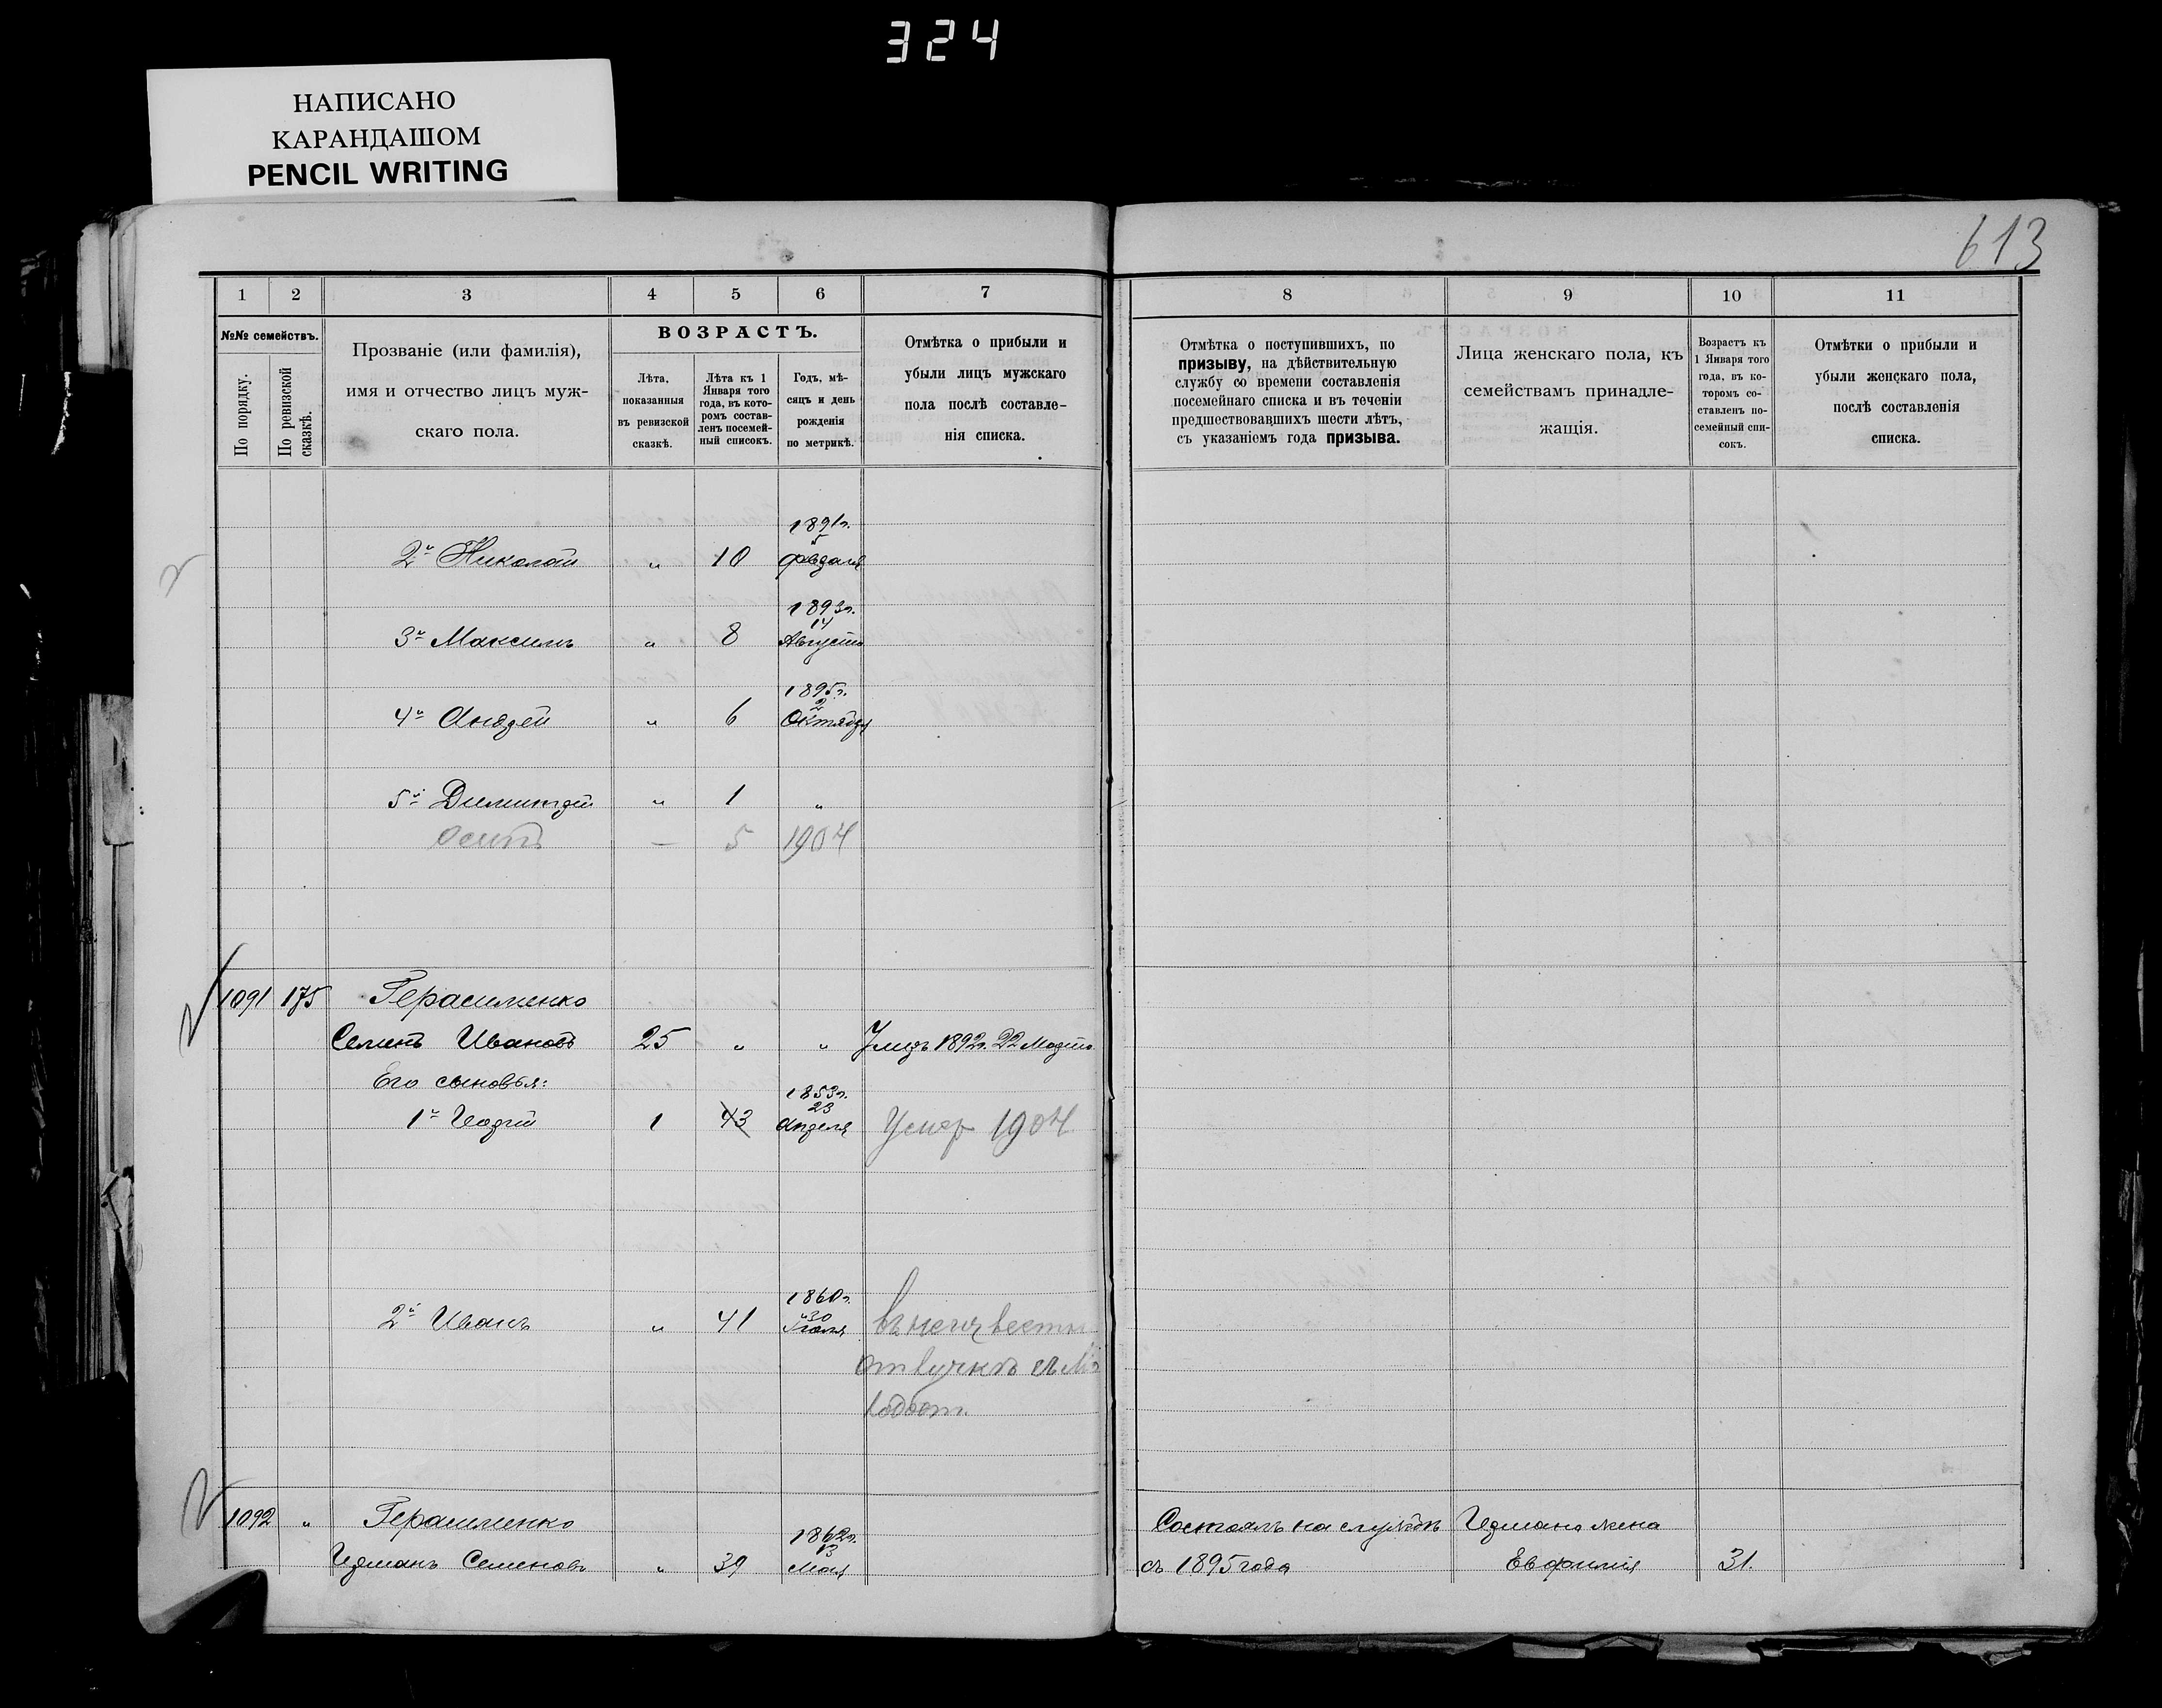 324
НАПИСАНО
КАРАНДАШОМ
PENCIL WRITING
613
1 2 3 4 5 6 7 8 9 10 11
№№ семействъ.
По порядку.
По ревизской сказкѣ.
Прозваніе (или фамилія),
имя и отчество лицъ муж-
скаго пола.
ВОЗРАСТЪ.
Лѣта,
показанныя
въ ревизской
сказкѣ.
Лѣта къ 1
Января того
года, въ кото-
ромъ состав-
ленъ посемей-
ный списокъ.
Годъ, мѣ-
сяцъ и день
рожденія
по метрикѣ.
Отмѣтка о прибыли и
убыли лицъ мужскаго
пола послѣ составле-
нія списка.
Отмѣтка о поступившихъ, по
призыву, на дѣйствительную
службу со времени составленія
посемейнаго списка и въ теченіи
предшествовавшихъ шести лѣтъ,
съ указаніемъ года призыва.
Лица женскаго пола, къ
семействамъ принадле-
жащія.
Возрастъ къ
1 Января того
года, въ ко-
торомъ со-
ставленъ по-
семейный спи-
сокъ.
Отмѣтки о прибыли и
убыли женскаго пола,
послѣ составленія
списка.
1891г.
2й Николай " 10 февраля
1893г.
14
3й Максимъ " 8 Августа
1895г.
2
4й Андрей " 6 Октября
5й Димитрій " 1 "
Осипъ — 5 1904
1091 175 Герасименко
Семенъ Ивановъ 25 " " Умеръ 1892г. 22 Марта
Его сыновья:
1853г.
23
1й Георгій 1 43 Апреля Умер 1904
1860г.
30
2й Иванъ " 41 въ неизвестн
отлучкѣ
1092 " Герасименко Состоялъ на службѣ Германа жена
1862г.
13
Германъ Семеновъ " 39 Мая съ 1895 года Евфимія 31.